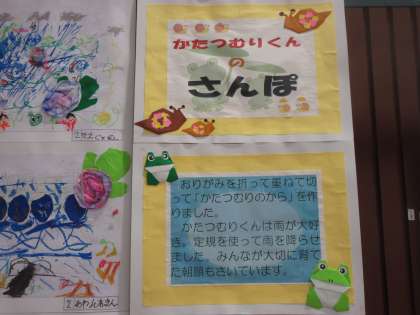 かたつむりくん
の
さんぽ
おりがみを折って重ねて切
って「かたつむりのから」を作
りました。
かたつむりくんは雨が大好
き。定規を使って雨を降らせ
ました。みんなが大切に育て
た朝顔もさいています。